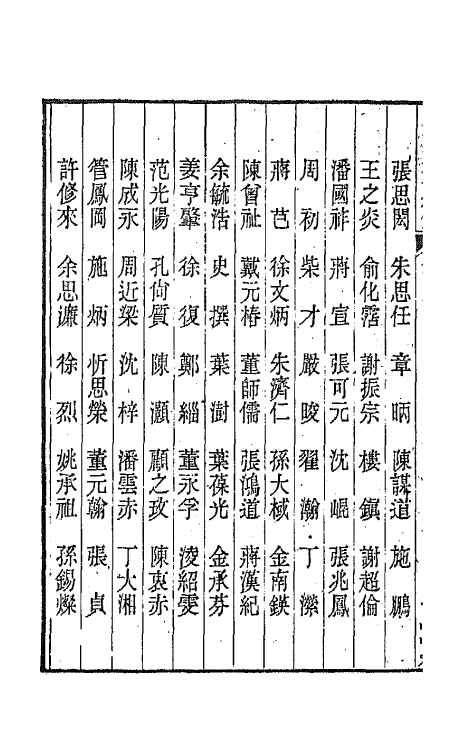 張思閎　朱思任　章　昞　陳謨道　施　鵬
王之炎　俞化霑　謝振宗　樓　鎮　謝超倫
潘國祚　蔣　宣　張可元　沈　崐　張兆鳳
周　初　柴　才　嚴　晙　翟　瀚　丁　濴
蔣　芑　徐文炳　朱濟仁　孫大棫　金南鍈
陳曾祉　戴元椿　董師儒　張鴻道　蔣漢紀
余毓浩　史　撰　葉　澍　葉葆光　金承芬
姜亨肇　徐　復　鄭　緇　董永孚　淩紹雯
范光陽　孔尙質　陳　灝　顧之孜　陳衷赤
陳成永　周近梁　沈　梓　潘雲赤　丁大湘
管鳳岡　施　炳　忻思榮　董元翰　張　貞
許修來　余思濂　徐　烈　姚承祖　孫錫燦